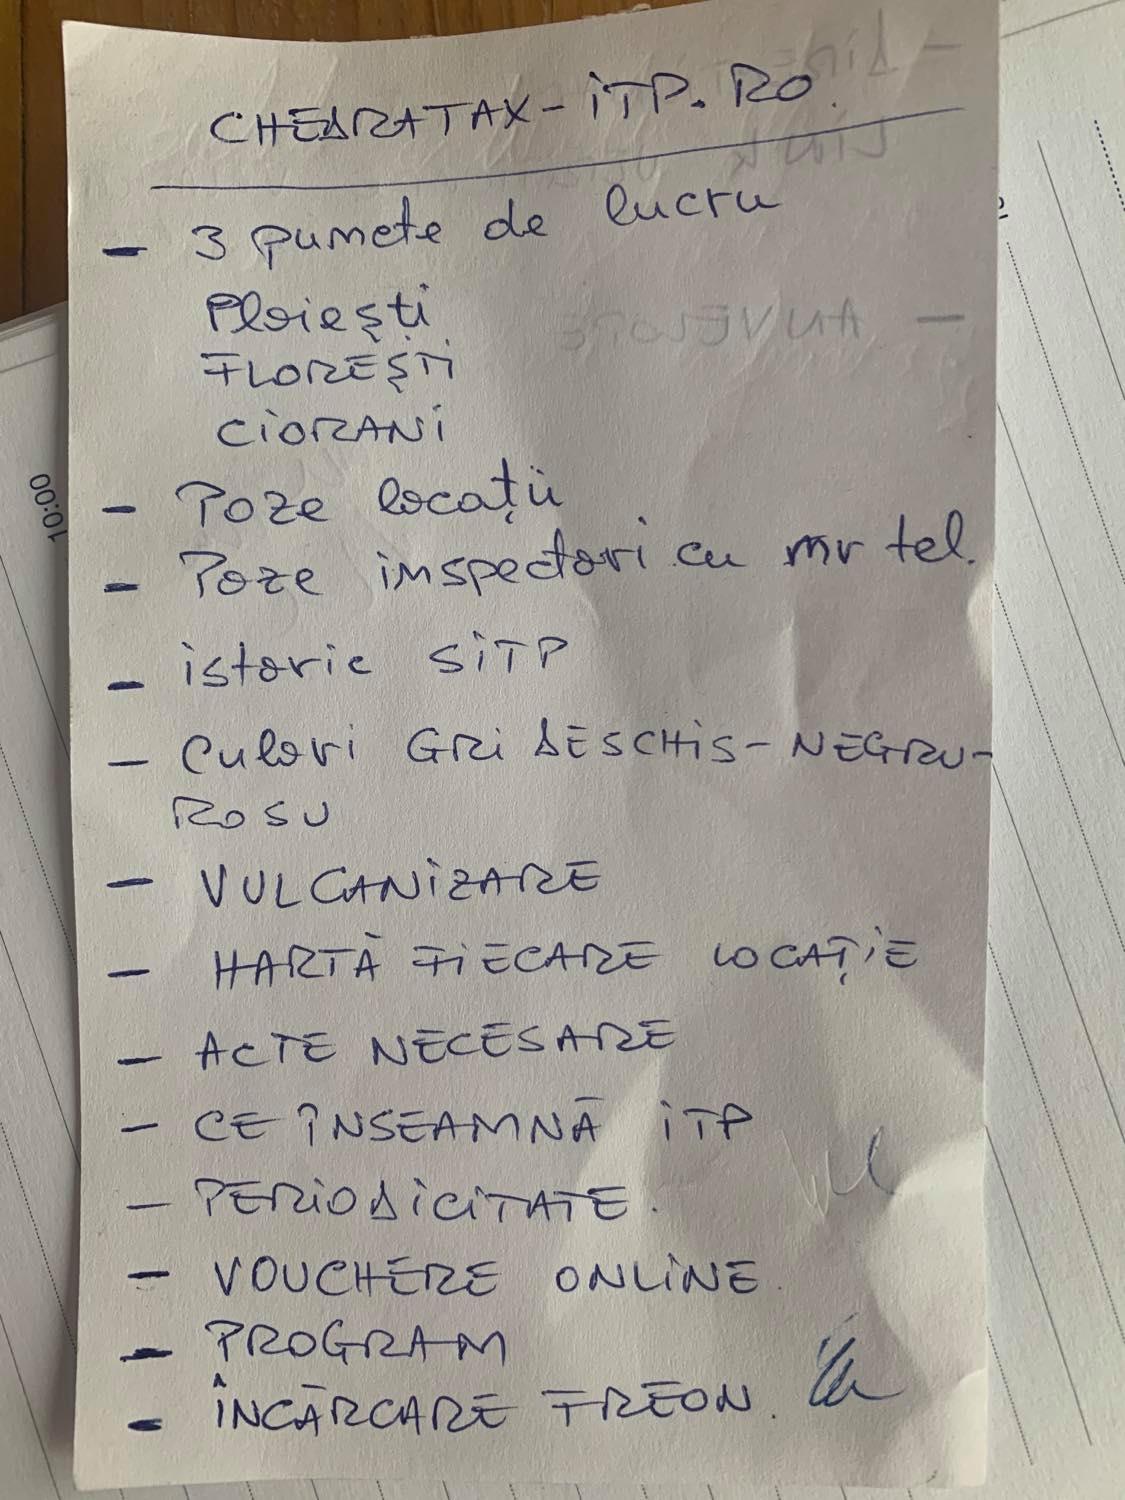 CHEDRATAX-iTP.RO.
- 3 pumcte de lucru
Ploiești
FLOREȘTI
CIORANI
- Poze locații
- Poze imspectori cu mr tel.
- istoric SiTP
- Culori GRi DESCHiS-NEGRU-
ROSU
- VULCANiZARE
- HARTĂ FiECARE LOCAȚiE
- ACTE NECESARE
- CE ÎNSEAMNĂ iTP
- PERiODiCiTATE.
- VOUCHERE ONLiNE.
- PROGRAM
- ÎNCĂRCARE FREON.
- ANVELOPE
10:00